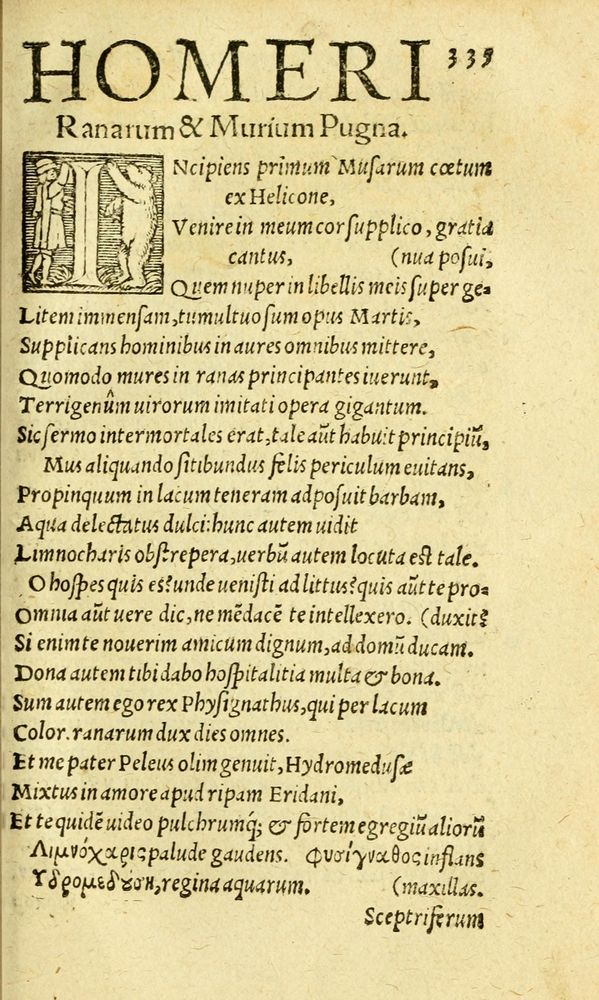 HOMERI 339
Ranarum & Murium Pugna.
INcipiens primum Musarum cœtum
ex Helicone,
Venire in meum cor supplico, gratia
cantus, (nua posui,
Quem nuper in libellis meis super ge-
Litem immensam, tumultuosum opus Martis,
Supplicans hominibus in aures omnibus mittere,
Quomodo mures in ranas principantes iuerunt,
Terrigenûm uirorum imitati opera gigantum.
Sic sermo inter mortales erat, tale aūt habuit principiū,
Mus aliquando sitibundus felis periculum euitans,
Propinquum in lacum teneram adposuit barbam,
Aqua delectatus dulci: hunc autem uidit
Limnocharis obstrepera, uerbū autem locuta est tale.
O hospes quis es? unde uenisti ad littus? quis aūt te pro-
Omnia aūt uere dic, ne mēdacē te intellexero. (duxit?
Si enim te nouerim amicum dignum, ad domū ducam.
Dona autem tibi dabo hospitalitia multa & bona.
Sum autem ego rex Physignathus, qui per lacum
Color. ranarum dux dies omnes.
Et me pater Peleus olim genuit, Hydromedusæ
Mixtus in amore apud ripam Eridani,
Et te quidē uideo pulchrumq; & fortem egregiū aliorū
Λιμνόχαρις palude gaudens. Φυσίγναθος inflans
Υδρομεδούση, regina aquarum. (maxillas.
Sceptriferum